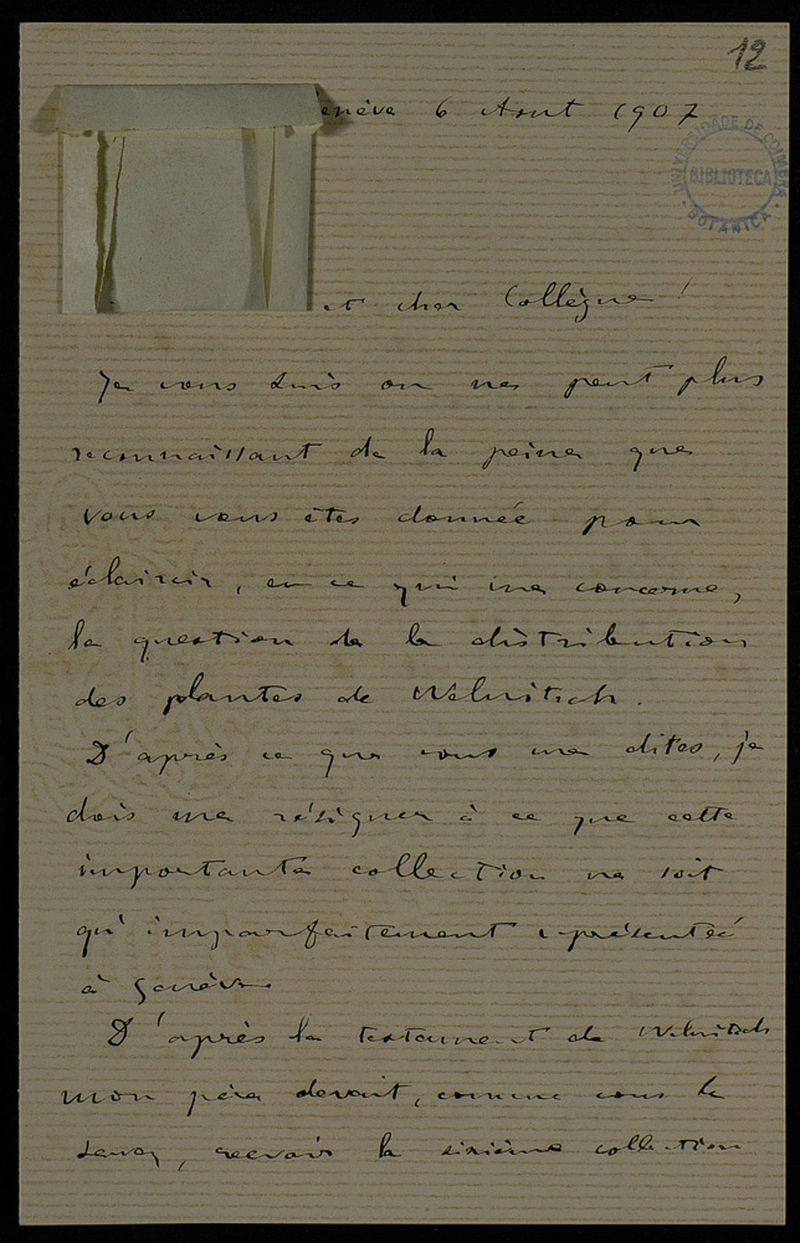 12
enève 6 Aout 1907
UNIVERSIDADE DE COIMBRA
BIBLIOTECA
BOTANICA
et cher Collègue !
Je vous suis on ne peut plus
reconnaissant de la peine que
vous vous êtes donnée pour
éclaircir, en ce qui me concerne,
la question de la distribution
des plantes de Welwitsch.
D'après ce que vous me dites, je
dois me résigner à ce que cette
importante collection ne soit
qu'imparfaitement représentée
à Genève.
D'après le testament de Welwitsch
mon père devait, comme vous le
savez, recevoir la sixième collection